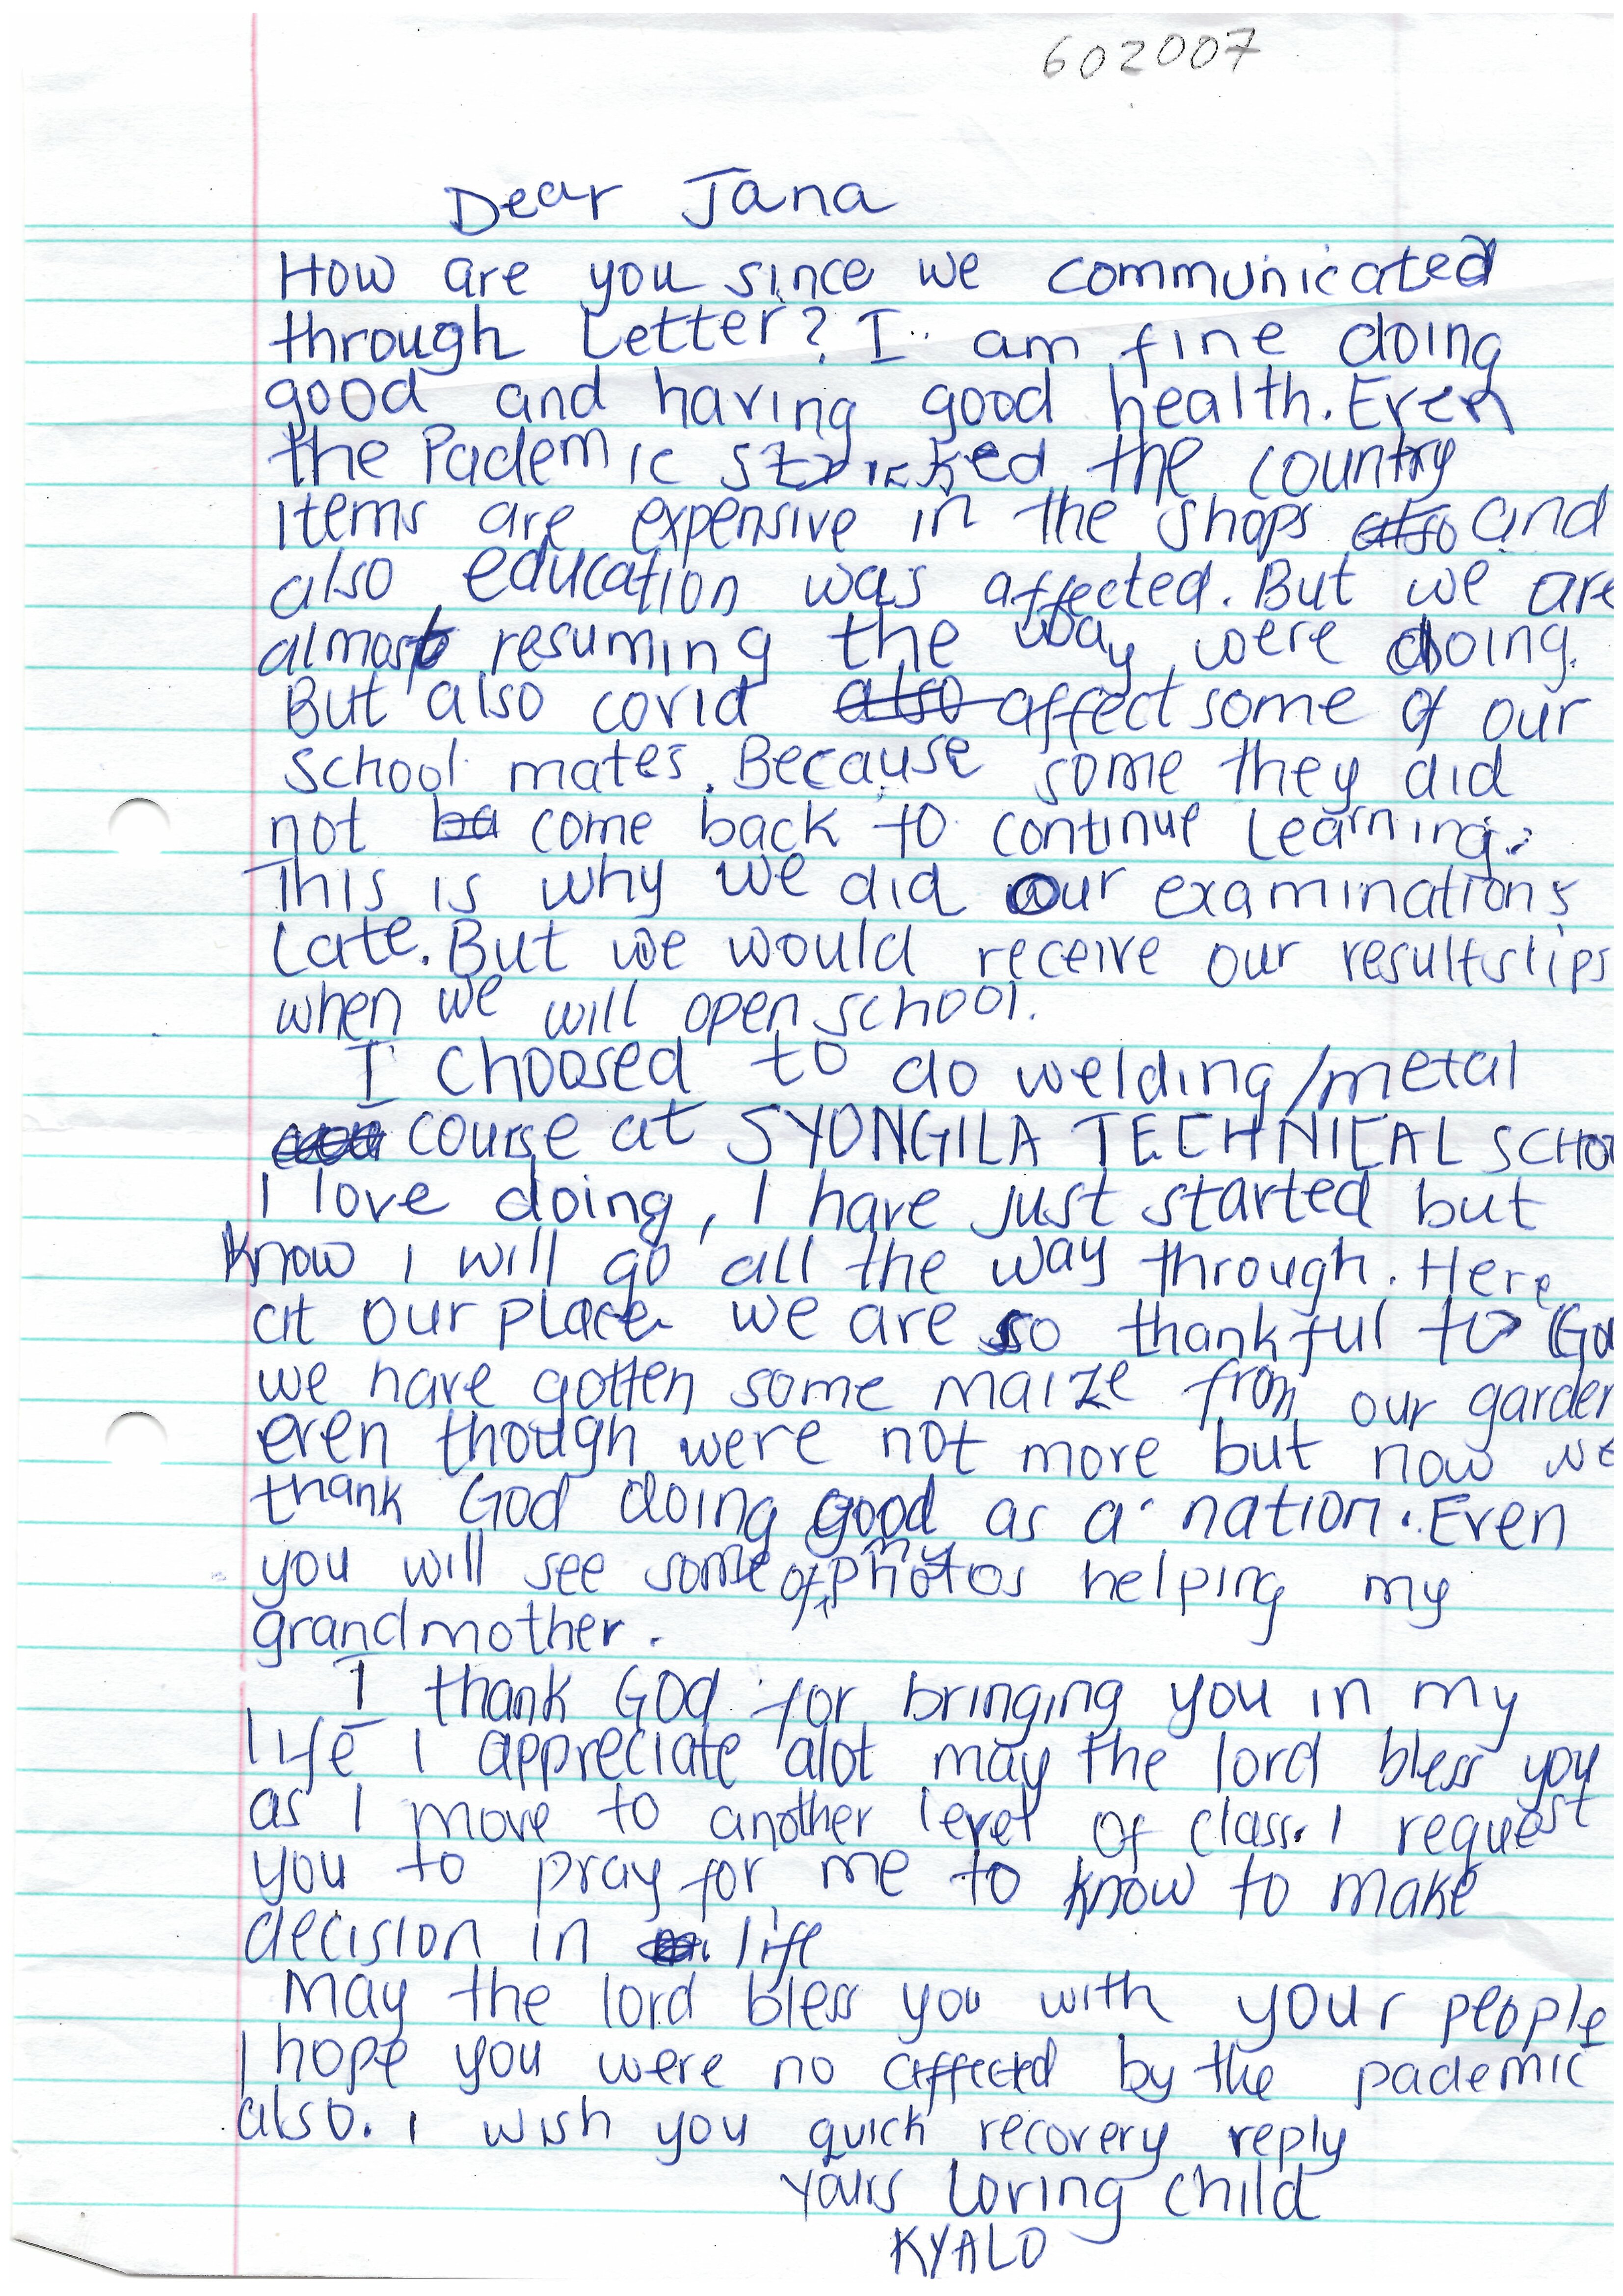 602007
Dear Jana
How are you since we communicated
through Letter? I am fine doing
good and having good health. Even
the Pademic stricked the country
items are expensive in the shops also and
also education was affected. But we are
almost resuming the way were doing.
But also covid also affect some of our
school mates. Because some they did
not ba come back to continue learning.
This is why we did our examinations
late. But we would receive our resultslips
when we will open school.
I choosed to do welding/metal
course at SYONGILA TECHNICAL SCHOO
I love doing, I have just started but
know I will go all the way through. Here
at our place we are so thankful to God
we have gotten some maize from our garden
even though were not more but now we
thank God doing good as a nation. Even
you will see some of my photos helping my
grandmother.
I thank God for bringing you in my
life I appreciate alot may the lord bless you
as I move to another level of class. I request
you to pray for me to know to make
decision in life
May the lord bless you with your people
I hope you were no affected by the pademic
also. I wish you quick recovery reply
Yours loving child
KYALO